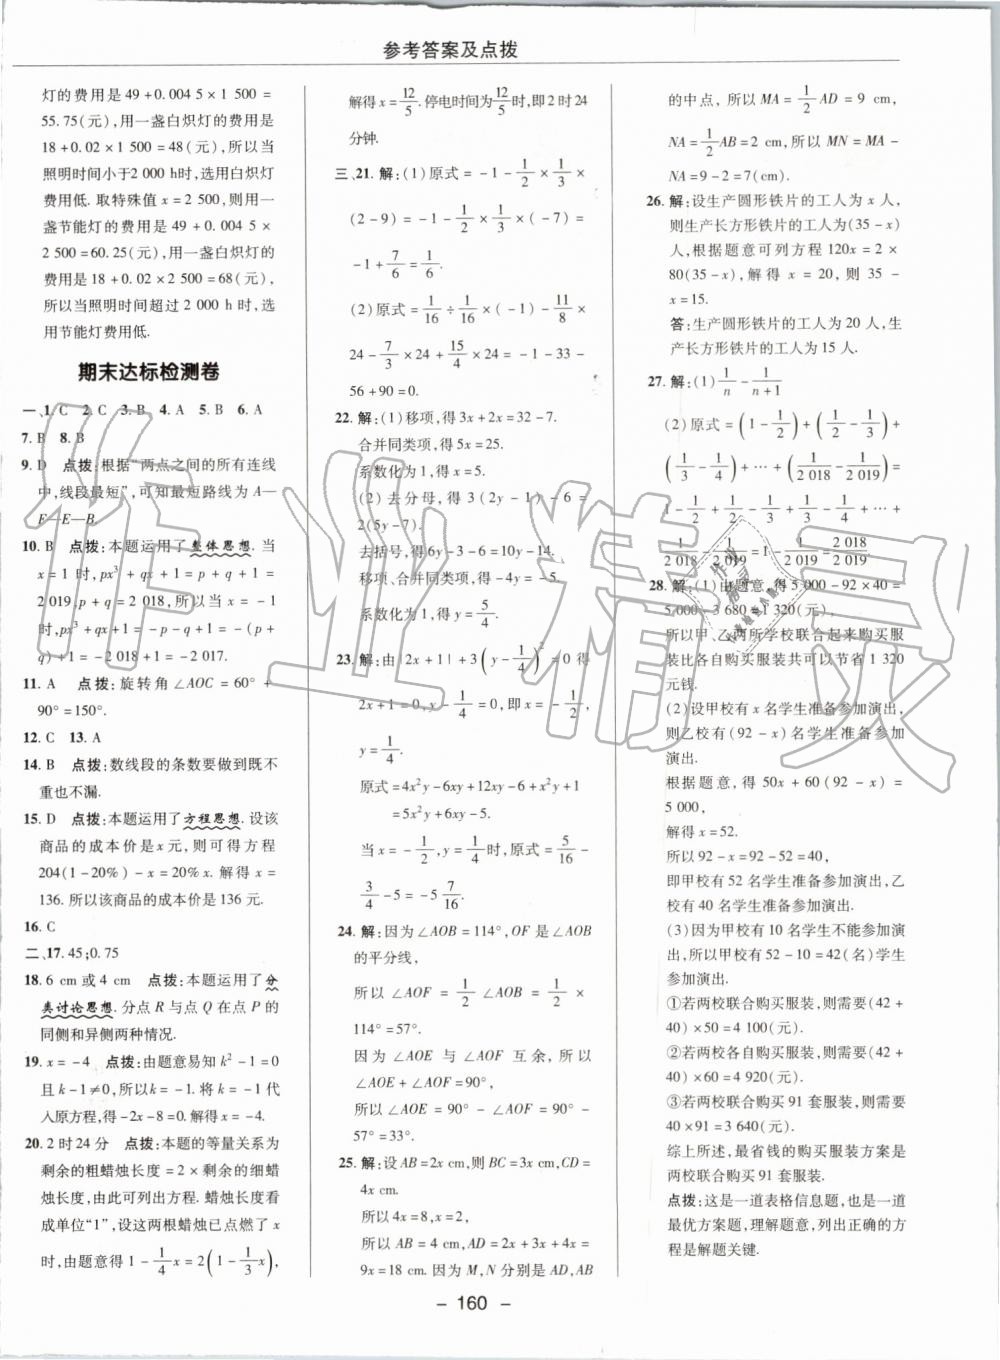 参考答案及点拨
灯的费用是 49+0.004 5×1 500=
55.75(元),用一盏白炽灯的费用是
18+0.02×1 500=48(元),所以当
照明时间小于2 000 h时,选用白炽灯
费用低. 取特殊值 x=2 500,则用一
盏节能灯的费用是 49+0.004 5×
2 500=60.25(元),用一盏白炽灯的
费用是18+0.02×2 500=68(元),
所以当照明时间超过 2 000 h时,选
用节能灯费用低.
期末达标检测卷
一、1. C 2. C 3. B 4. A 5. B 6. A
7. B 8. B
9. D 点拨:根据“两点之间的所有连线
中,线段最短”,可知最短路线为 A—
F—E—B.
10. B 点拨:本题运用了整体思想. 当
x=1时,px³+qx+1=p+q+1=
2 019,p+q=2 018,所以当 x=-1
时,px³+qx+1=-p-q+1=-(p+
q)+1=-2 018+1=-2 017.
11. A 点拨:旋转角∠AOC=60°+
90°=150°.
12. C 13. A
14. B 点拨:数线段的条数要做到既不
重也不漏.
15. D 点拨:本题运用了方程思想. 设该
商品的成本价是 x 元,则可得方程
204(1-20%)-x=20%x. 解得 x=
136. 所以该商品的成本价是 136 元.
16. C
二、17. 45;0.75
18. 6 cm或4 cm 点拨:本题运用了分
类讨论思想. 分点 R 与点 Q 在点 P 的
同侧和异侧两种情况.
19. x=-4 点拨:由题意易知 k²-1=0
且k-1≠0,所以k=-1. 将k=-1代
入原方程,得-2x-8=0. 解得x=-4.
20. 2时24分 点拨:本题的等量关系为
剩余的粗蜡烛长度=2×剩余的细蜡
烛长度,由此可列出方程. 蜡烛长度看
成单位“1”,设这两根蜡烛已点燃了 x
时,由题意得 1-1/4x=2(1-1/3x),
解得x=12/5. 停电时间为12/5时,即2时24
分钟.
三、21. 解:(1)原式=-1-1/2×1/3×
(2-9)=-1-1/2×1/3×(-7)=
-1+7/6=1/6.
(2)原式=1/16÷1/16×(-1)-11/8×
24-7/3×24+15/4×24=-1-33-
56+90=0.
22. 解:(1)移项,得3x+2x=32-7.
合并同类项,得5x=25.
系数化为1,得x=5.
(2)去分母,得3(2y-1)-6=
2(5y-7).
去括号,得6y-3-6=10y-14.
移项、合并同类项,得-4y=-5.
系数化为1,得y=5/4.
23. 解:由|2x+1|+3(y-1/4)²=0得
2x+1=0,y-1/4=0,即x=-1/2,
y=1/4.
原式=4x²y-6xy+12xy-6+x²y+1
=5x²y+6xy-5.
当x=-1/2,y=1/4时,原式=5/16-
3/4-5=-5 7/16.
24. 解:因为∠AOB=114°,OF是∠AOB
的平分线,
所以∠AOF=1/2∠AOB=1/2×
114°=57°.
因为∠AOE与∠AOF互余,所以
∠AOE+∠AOF=90°,
所以∠AOE=90°-∠AOF=90°-
57°=33°.
25. 解:设AB=2x cm,则BC=3x cm,CD=
4x cm.
所以4x=8,x=2,
所以AB=4 cm,AD=2x+3x+4x=
9x=18 cm. 因为M,N分别是AD,AB
的中点,所以MA=1/2AD=9 cm,
NA=1/2AB=2 cm,所以MN=MA-
NA=9-2=7(cm).
26. 解:设生产圆形铁片的工人为x人,
则生产长方形铁片的工人为(35-x)
人,根据题意可列方程120x=2×
80(35-x),解得x=20,则35-
x=15.
答:生产圆形铁片的工人为20人,生
产长方形铁片的工人为15人.
27. 解:(1)1/n-1/(n+1)
(2)原式=(1-1/2)+(1/2-1/3)+
(1/3-1/4)+…+(1/2 018-1/2 019)=
1-1/2+1/2-1/3+1/3-1/4+…+
1/2 018-1/2 019=1-1/2 019=2 018/2 019.
28. 解:(1)由题意,得5 000-92×40=
5 000-3 680=1 320(元).
所以甲、乙两所学校联合起来购买服
装比各自购买服装共可以节省1 320
元钱.
(2)设甲校有x名学生准备参加演出,
则乙校有(92-x)名学生准备参加
演出.
根据题意,得50x+60(92-x)=
5 000,
解得x=52.
所以92-x=92-52=40,
即甲校有52名学生准备参加演出,乙
校有40名学生准备参加演出.
(3)因为甲校有10名学生不能参加演
出,所以甲校有52-10=42(名)学生
参加演出.
①若两校联合购买服装,则需要(42+
40)×50=4 100(元).
②若两校各自购买服装,则需要(42+
40)×60=4 920(元).
③若两校联合购买91套服装,则需要
91×40=3 640(元).
综上所述,最省钱的购买服装方案是
两校联合购买91套服装.
点拨:这是一道表格信息题,也是一道
最优方案题,理解题意,列出正确的方
程是解题关键.
- 160 -
作业精灵